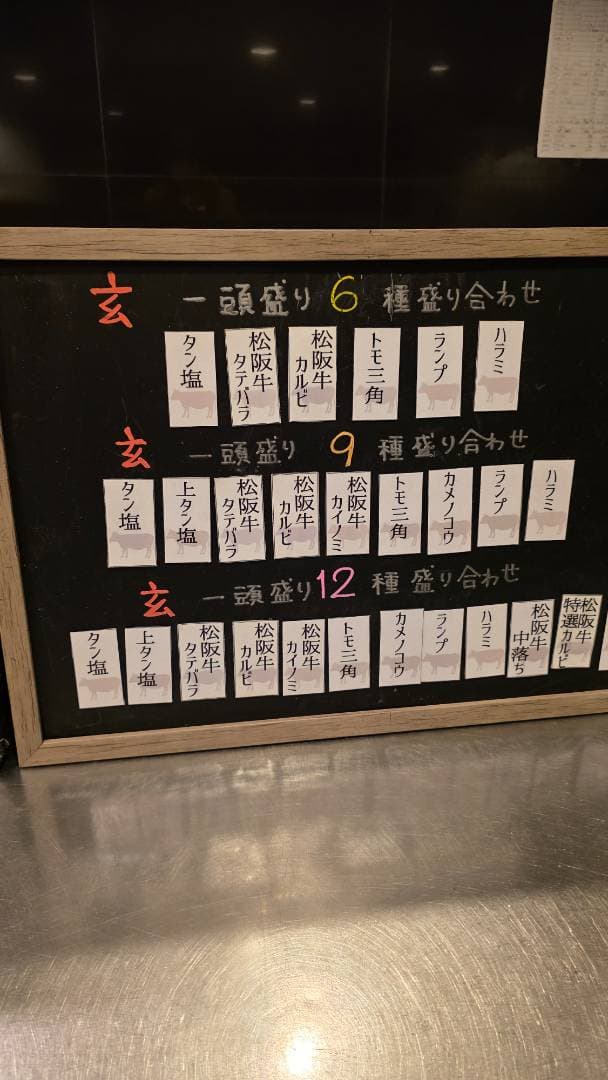 玄 一頭盛り 6 種盛り合わせ
タン塩
松阪牛
タテバラ
松阪牛
カルビ
トモ三角
ランプ
ハラミ
玄 一頭盛り 9 種盛り合わせ
タン塩
上タン塩
松阪牛
タテバラ
松阪牛
カルビ
松阪牛
カイノミ
トモ三角
カメノコウ
ランプ
ハラミ
玄 一頭盛り 12 種盛り合わせ
タン塩
上タン塩
松阪牛
タテバラ
松阪牛
カルビ
松阪牛
カイノミ
トモ三角
カメノコウ
ランプ
ハラミ
松阪牛
中落ち
松阪牛
特選カルビ